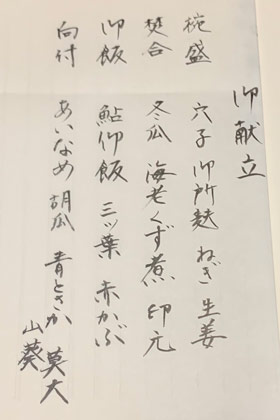 御献立
椀盛 穴子 御所麩 ねぎ 生姜
焚合 冬瓜 海老くず煮 印元
御飯 鮎御飯 三ッ葉 赤かぶ
向付 あいなめ 胡瓜 青とさか 莫大
山葵